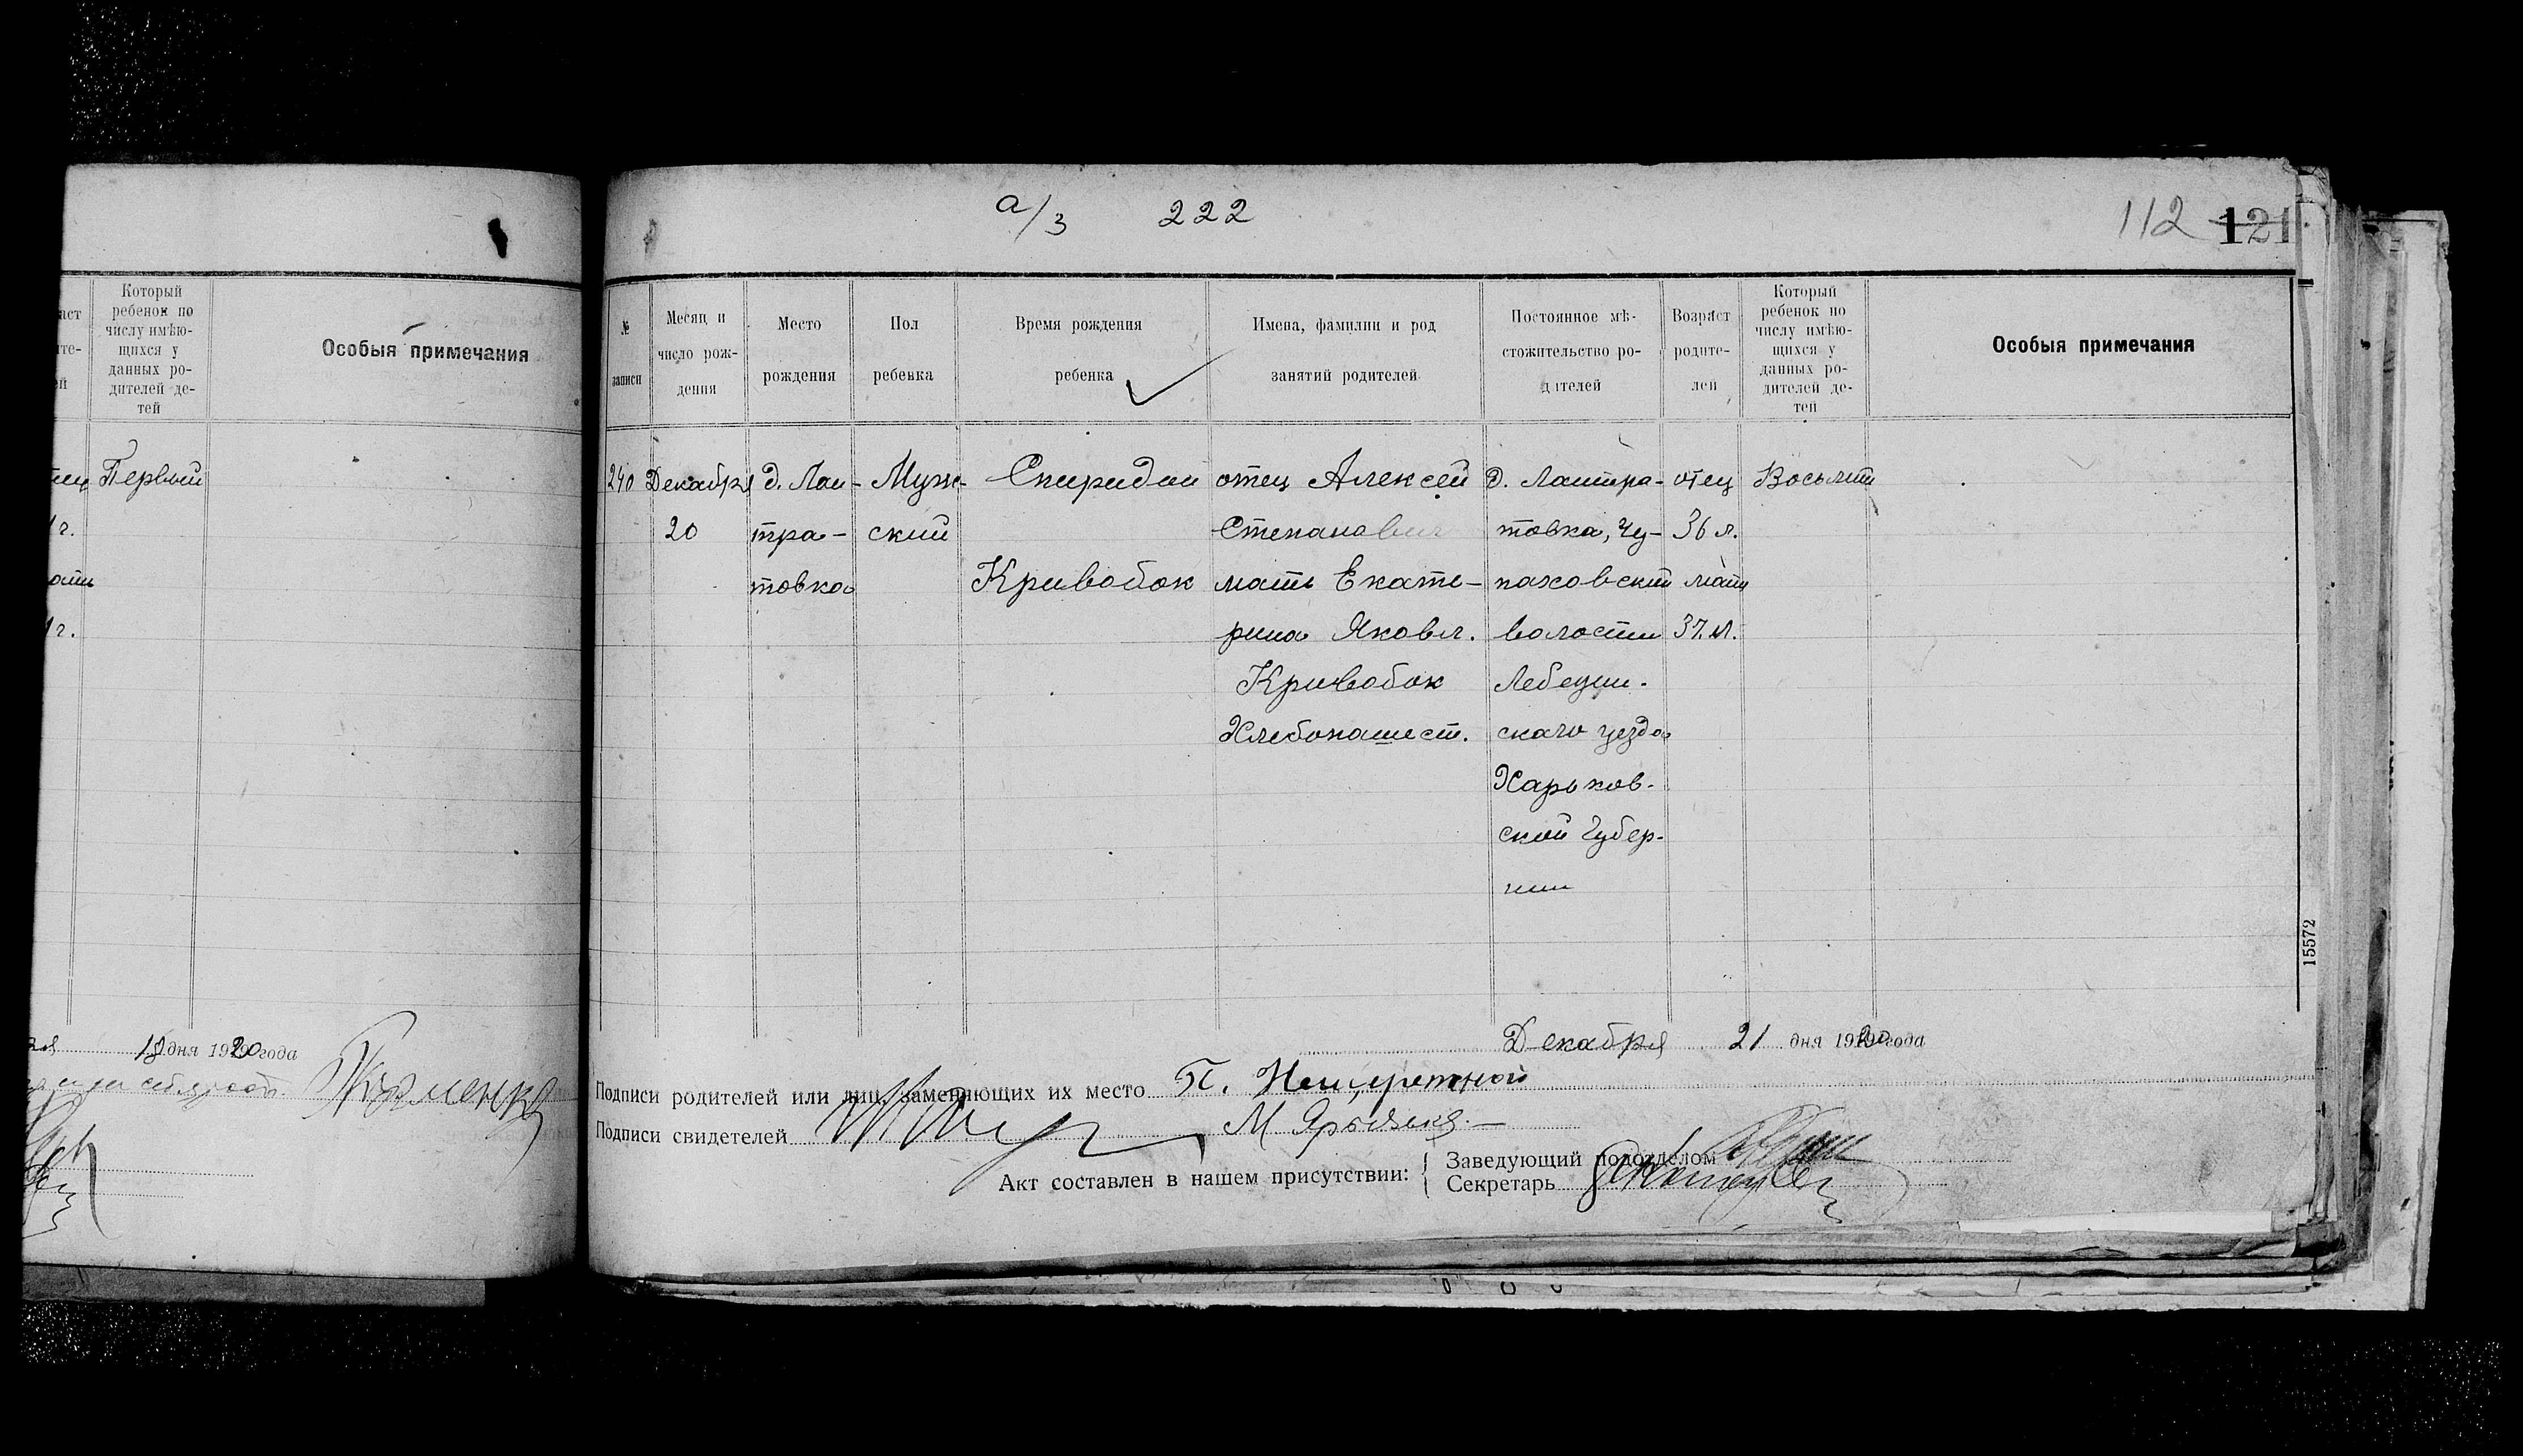 а/3 222
112 121
аст
Который
ребенок по
числу имѣю-
щихся у
данных ро-
дителей де-
тей
Особыя примечания
Первый
г.
г.
дня 1920 года
№
записи
Месяц и
число рож-
дения
Место
рождения
Пол
ребенка
Время рождения
ребенка
Имена, фамилии и род
занятий родителей
Постоянное мѣ-
стожительство ро-
дителей
Возраст
родите-
лей
Который
ребенок по
числу имѣю-
щихся у
данных ро-
дителей де-
тей
Особыя примечания
240
Декабря
20
д. Лаш-
тра-
товка
Муж-
ский
Спиридон
Кривобок
отец Алексей
Степанович
мать Екате-
рина Яковл.
Кривобок
Хлебопашест.
д. Лаштра-
товка, Чу-
паховский
волости
Лебедин-
скаго уезда
Харьков-
ской Губер-
нии
отец
36 л.
мать
37 л.
Восьмый
15572
Декабря 21 дня 1920 года
Подписи родителей или лиц, заменяющих их место П.
Подписи свидетелей М
Акт составлен в нашем присутствии:
Заведующий подотделом
Секретарь